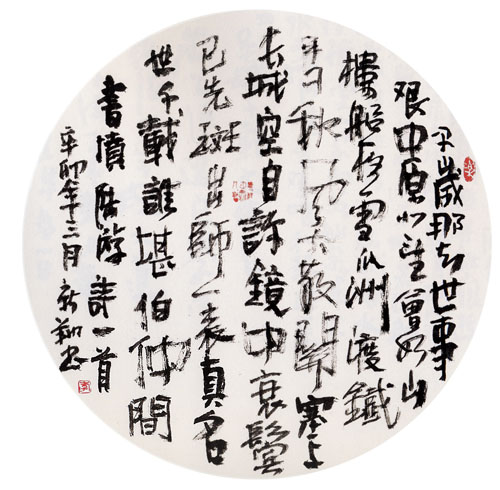 早歲那知世事
艰中原北望曾如山
樓船夜雪瓜洲渡鐵
馬秋風大散關塞上
長城空自許鏡中衰鬢
已先斑出師一表真名
世千載誰堪伯仲間
書憤陸游詩一首
辛卯年三月新翔書